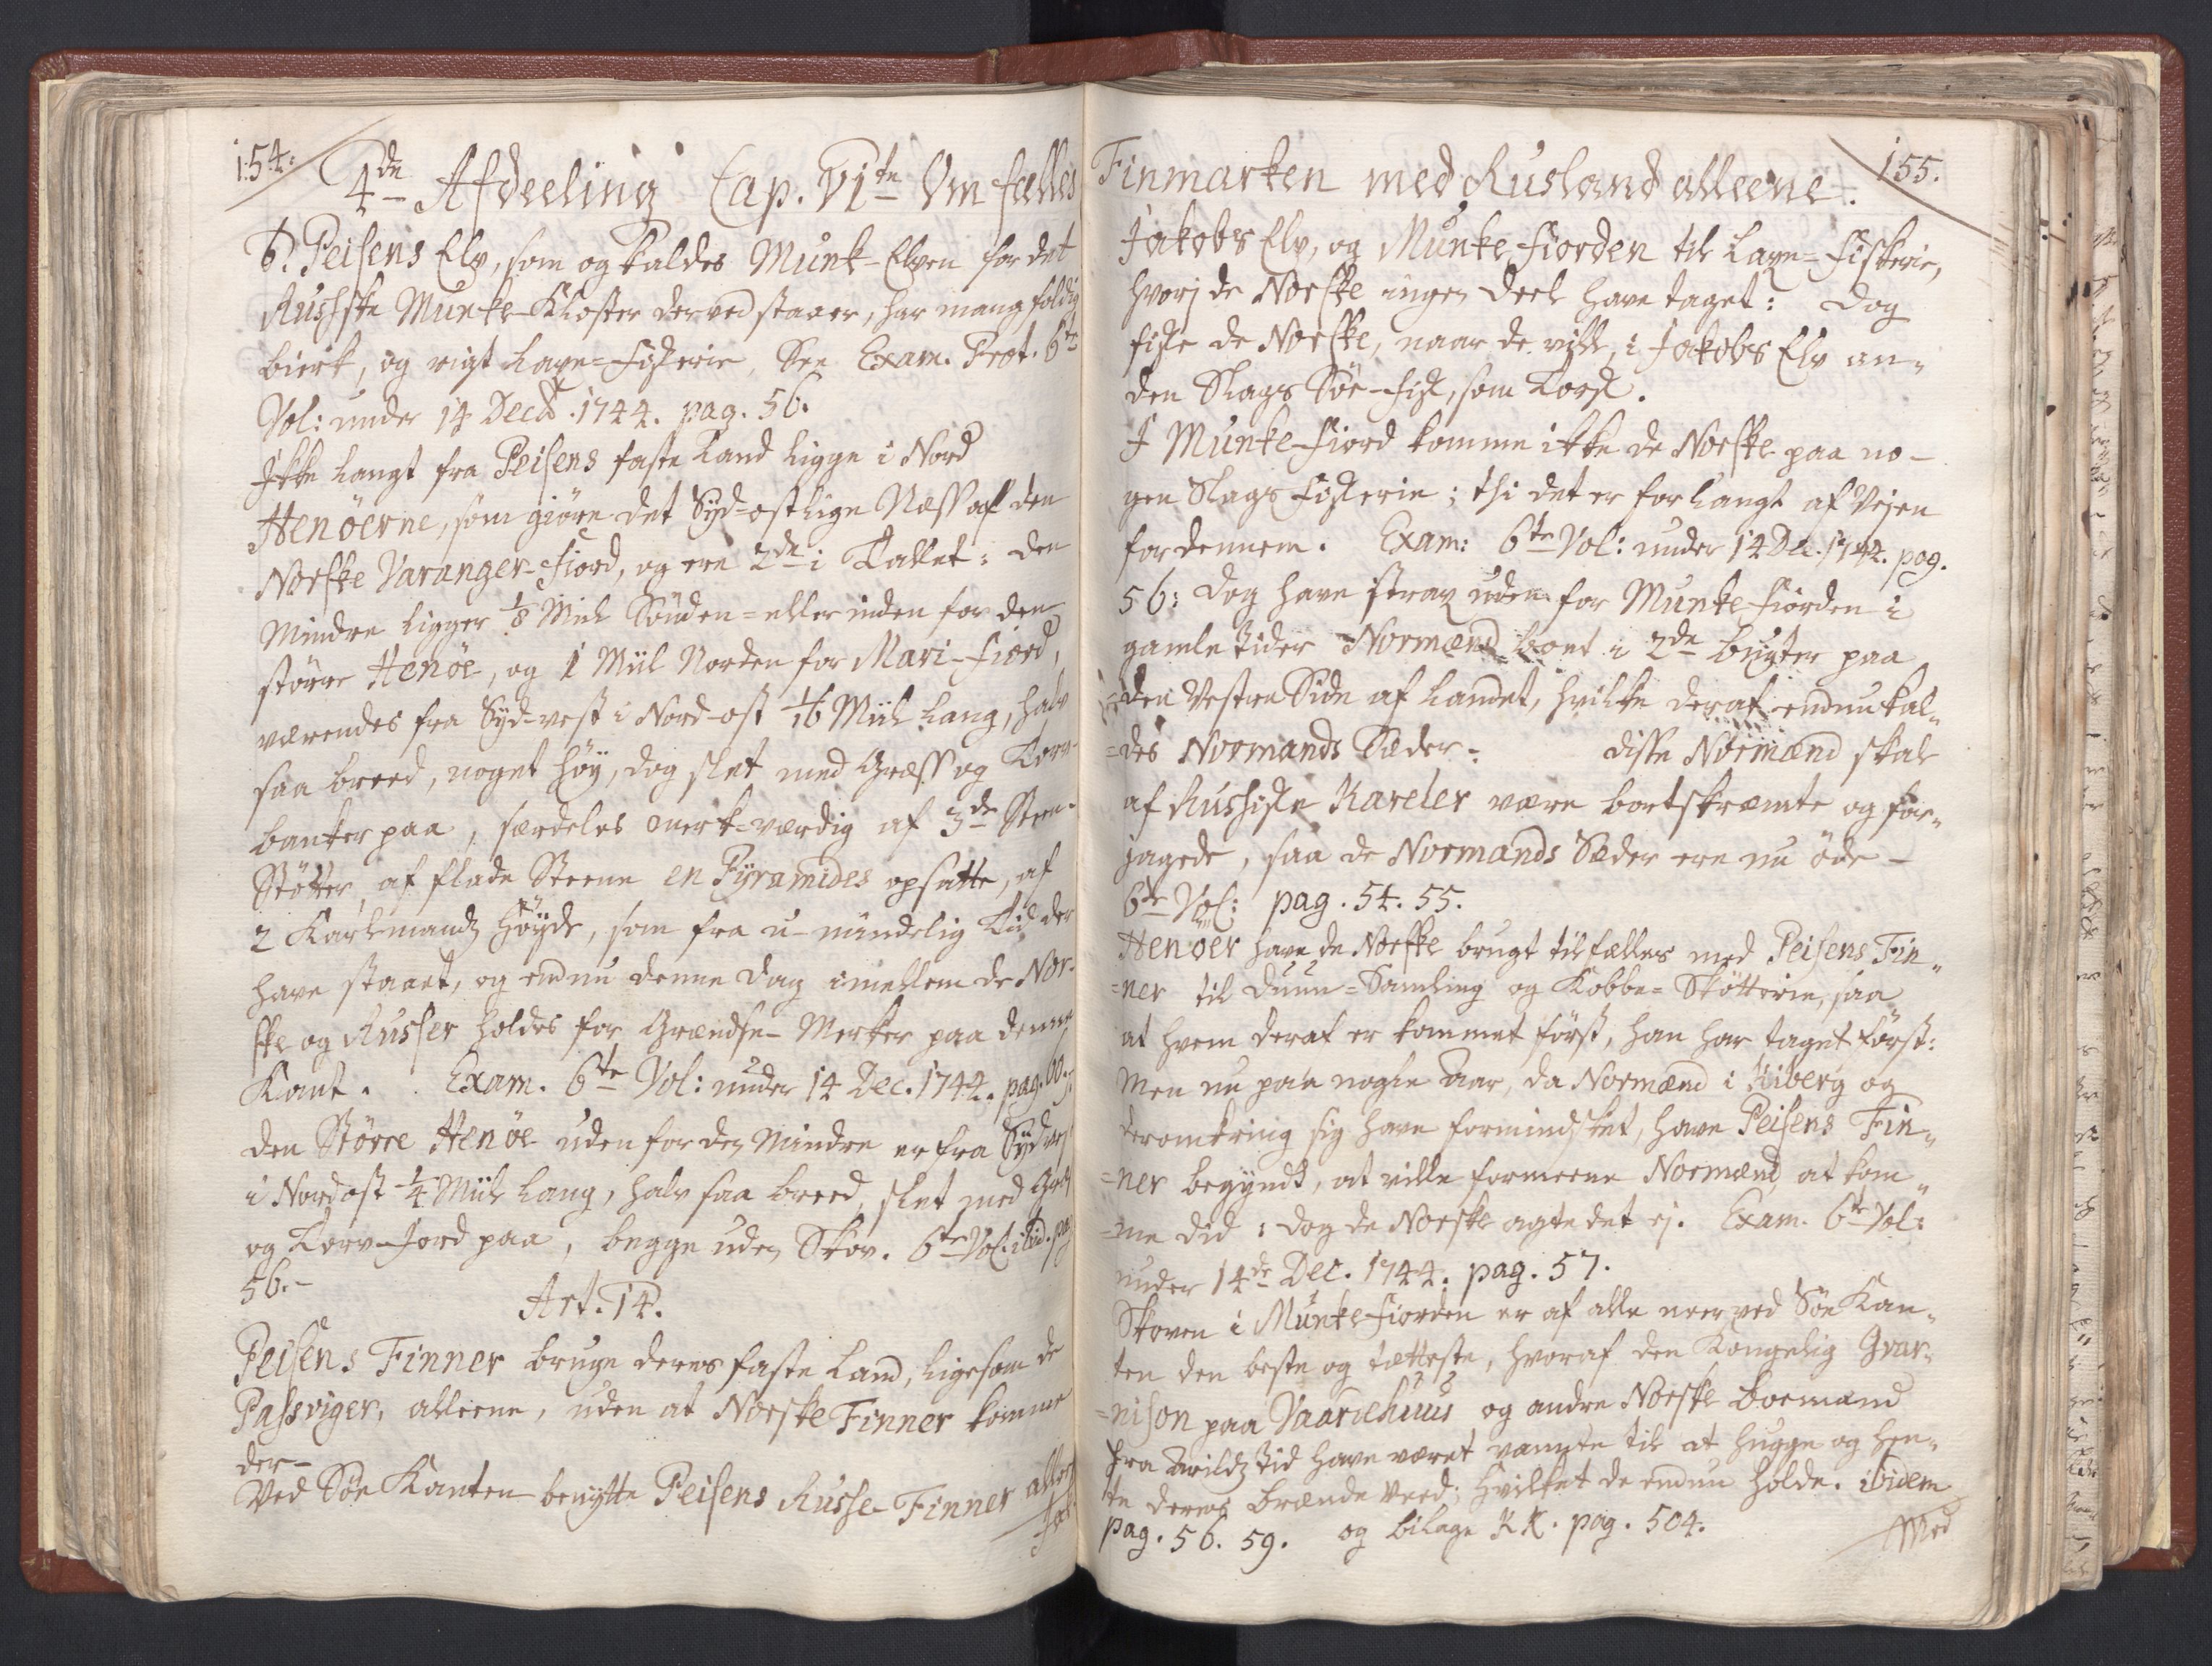 154.
4de Afdeeling Cap. VIte Om fælles
6. Peisens Elv, som og kaldes Munk-Elven for det
Russiske Munke-Kloster derved staaer, har mangfoldig
birk, og rigt Laxe-Fiskerie, See Exam. Prot. 6te
Vol: under 14 Decbr. 1744. pag. 56.
Ikke langt fra Peisens faste Land ligge i Nord
Henöerne, som giöre det Syd-ostlige Næss af den
Norske Varanger-Fiord, og ere 2de i Tallet: Den
Mindre ligger 1/8 Miil Sönden- eller inden for den
större Henöe, og 1 Miil Norden for Mari-Fiord,
værendes fra Syd-vest i Nord-ost 1/16 Miil lang, halv
saa breed, noget höy, dog slet med Græss og Torv-
banker paa, særdeles merk-værdig af 3de Steen-
Stötter, af flade Steene en Pyramides opsatte, af
2 Karlmands Höyde, som fra u-mindelig Tid der
have staaet, og endnu denne Dag imellem de Nor-
ske og Russer holdes for Grændse-Merker paa denne
Kant. Exam. 6te Vol: under 14 Dec. 1744. pag. 60.
Den Större Henöe uden for den Mindre er fra Sydvest
i Nordost 1/4 Miil lang, halv saa breed, slet med Græs
og Torv-Jord paa, begge uden Skov. 6te Vol. ibid. pag
56.-
Art. 14.
Peisens Finner bruge deres faste Land, ligesom de
Passviger, alleene, uden at Norske Finner komme
der-
Ved Söe Kanten benytte Peisens Russe-Finner alleene
Jak
155.
Finmarken med Rusland alleene.
Jakobs Elv, og Munke-Fiorden til Laxe-Fiskerie,
hvorj de Norske ingen Deel have taget: Dog
fiske de Norske, naar de ville, i Jakobs Elv an-
den Slags Söe-fisk, som Torsk.
I Munke-Fiord komme ikke de Norske paa no-
gen Slags Fiskerie; thi det er for langt af Vejen
for dennem. Exam: 6te Vol: under 14 Dec. 1744. pag.
56: Dog have strax uden for Munke-Fiorden i
gamle Tider Normænd boet i 2de bugter paa
den Vestre Side af Landet, hvilke deraf endnu kal-
=des Normands Sæder. Disse Normænd skal
af Russiske Kareler være bortskræmte og for-
jagede, saa de Normands Sæder ere nu öde-
6te Vol: pag. 54. 55.
Henöer have de Norske brugt tilfælles med Peisens Fin-
=ner til Duun-Samling og Kobbe-Skötterie, saa
at hvem deraf er kommet först, han har taget först:
Men nu paa nogle Aar, da Normænd i Kiberg og
deromkring sig have formindsket, have Peisens Fin-
=ner begyndt, at ville formeene Normænd at kom-
=me did: dog de Norske agte det ej. Exam. 6te Vol:
under 14de Dec. 1744. pag. 57.
Skoven i Munke-Fiorden er af alle neer ved Söe Kan-
ten den beste og tætteste, hvoraf den Kongelig Gvar-
=nison paa Vaardehuus og andre Norske boemænd
fra Arilds Tid have været vannte til at hugge og hen-
te deres Brænde Veed; hvilket de endnu holde. ibidem
pag. 56. 59. og bilage KK. pag. 504.
Med